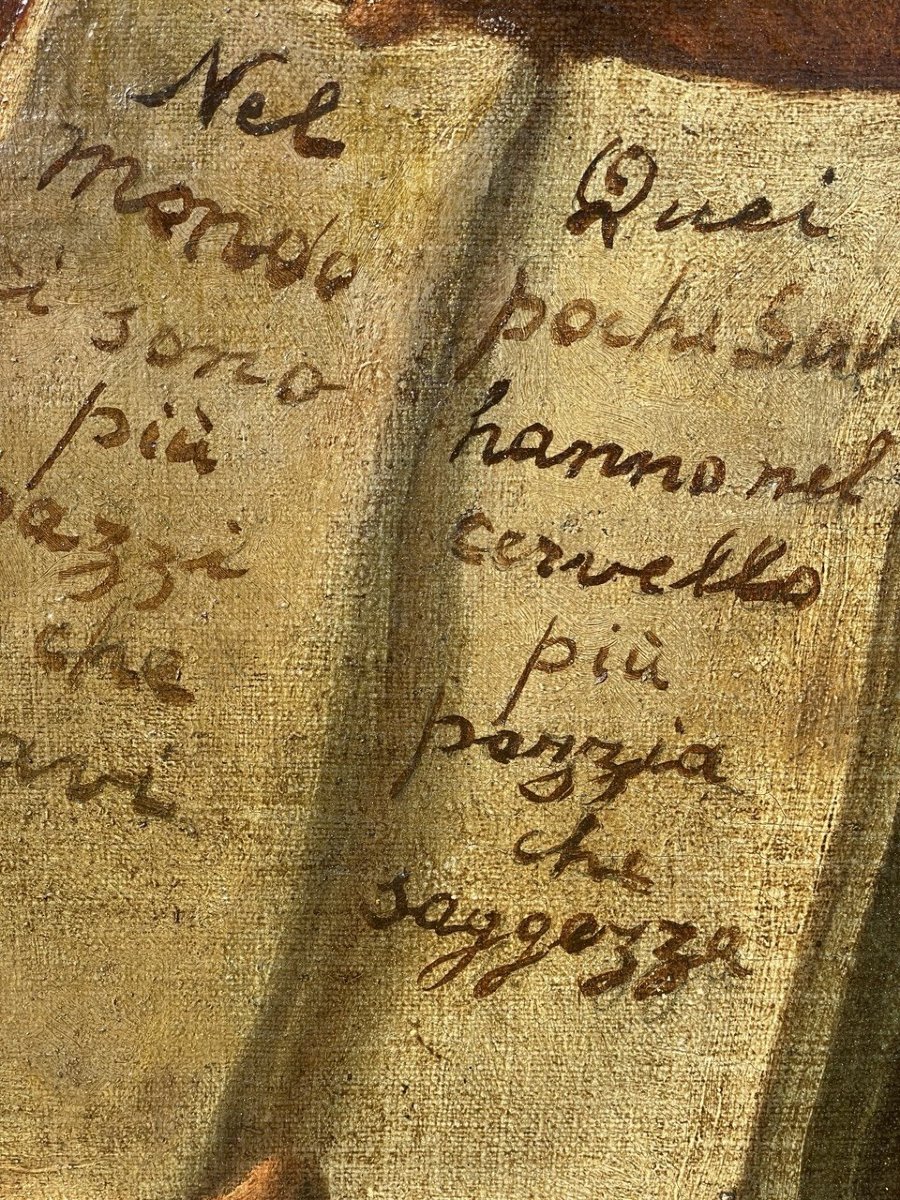 Nel
mondo
i sono
più
pazzi
che
avi
Quei
pochi Sav
hanno nel
cervello
più
pazzia
che
saggezza